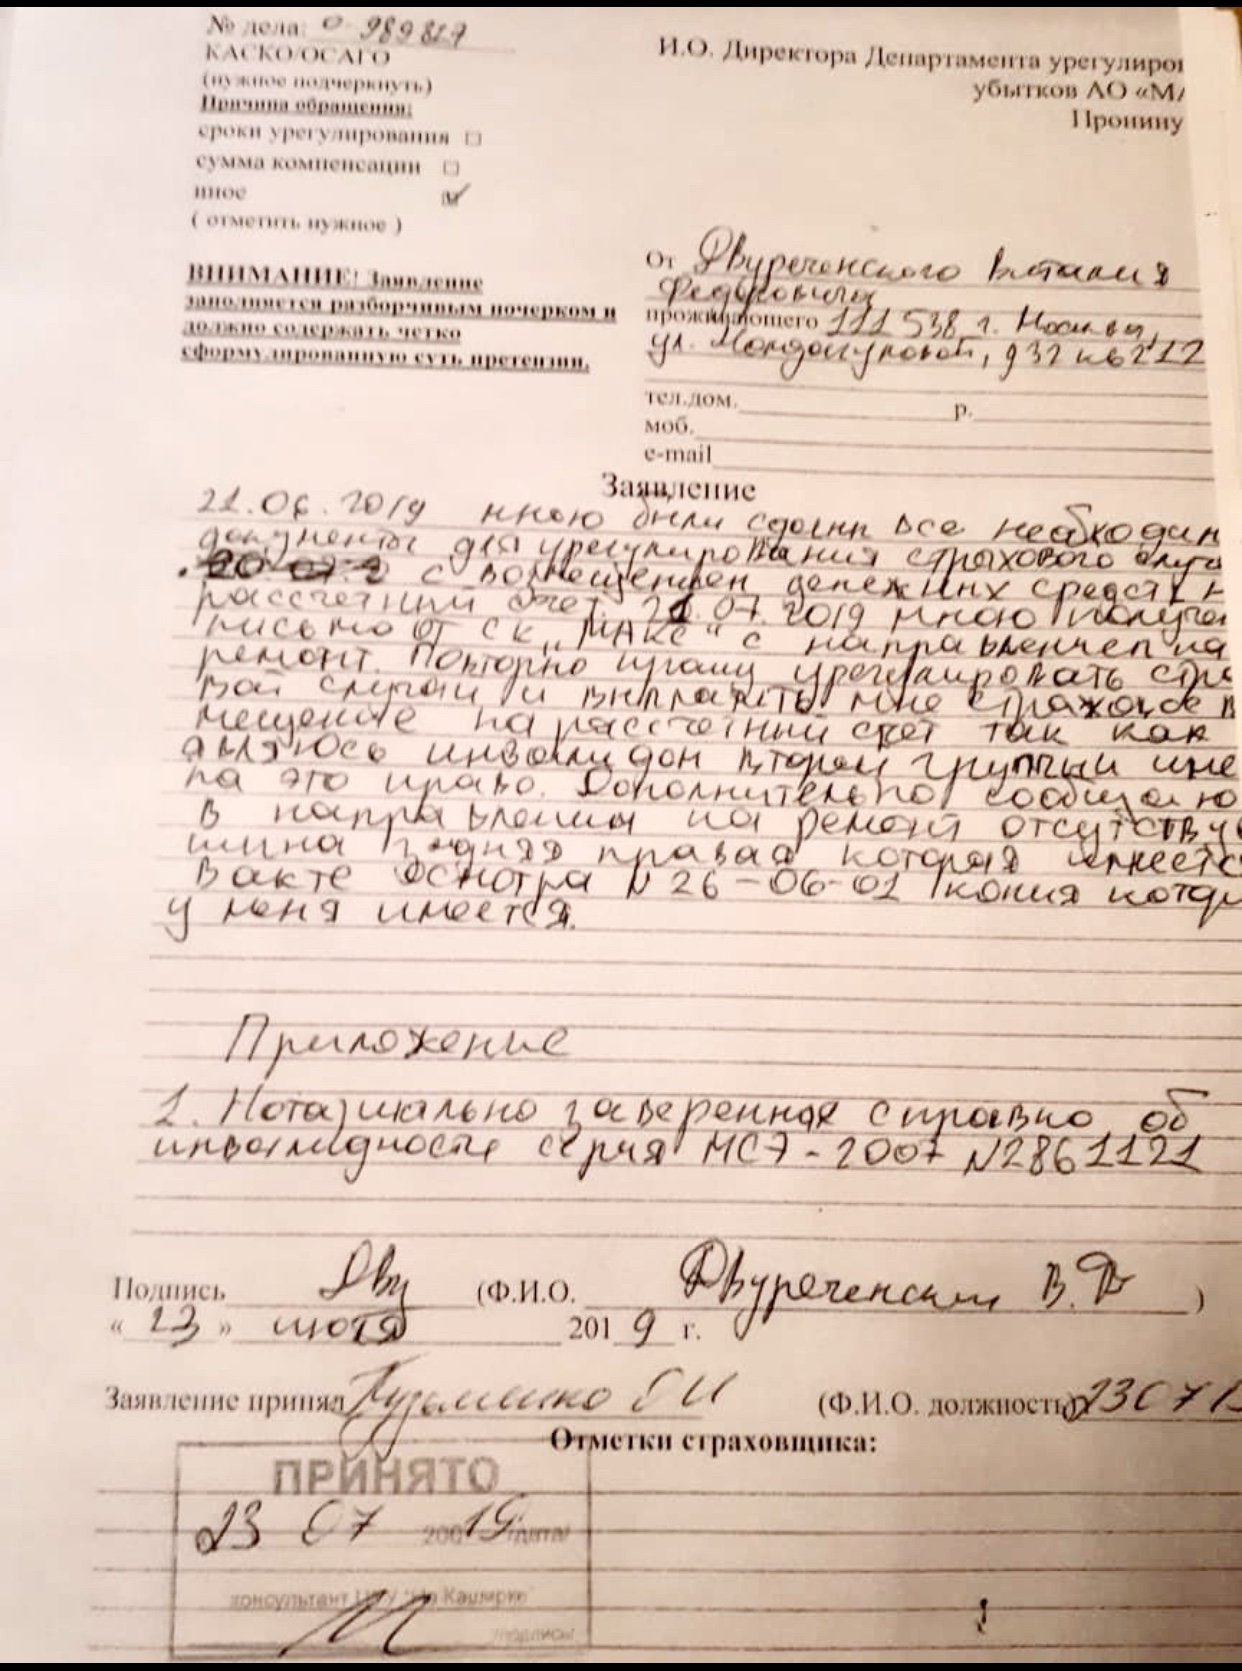 № дела: 0-989827
КАСКО/ОСАГО
(нужное подчеркнуть)
Причина обращения:
сроки урегулирования
сумма компенсации
иное
( отметить нужное )
И.О. Директора Департамента урегулиров
убытков АО «МА
Пронину
ВНИМАНИЕ! Заявление
заполняется разборчивым почерком и
должно содержать четко
сформулированную суть претензии.
От Двуреченского Виталия
Федоровича
проживающего 111538 г. Москва,
ул. Молдагуловой, д 32 кв 212
тел.дом. р.
моб.
e-mail
Заявление
21.06.2019 мною были сданы все необходим
документы для урегулирования страхового случа
с возмещением денежных средств н
рассчетный счет. 21.07.2019 мною получен
письмо от СК „МАКС" с направлением на
ремонт. Повторно прошу урегулировать стра
вой случай и выплатить мне страховое в
мещение на рассчетный счет так как
являюсь инвалидом второй группы и име
на это право. Дополнительно сообщаю
В направлении на ремонт отсутству
шина правая которая имеетс
в акте осмотра N 26-06-01 копия котор
у меня имеется.
Приложение
1. Нотариально заверенная справко об
инвалидности серия МСЭ-2007 N2861121
Подпись Дву (Ф.И.О. Двуреченский В.Ф )
« 23 » июля 2019 г.
Заявление принял Кузьменко (Ф.И.О. должность) 2307
Отметки страховщика:
ПРИНЯТО
23 07 200 19 /дата/
консультант
/подпись/